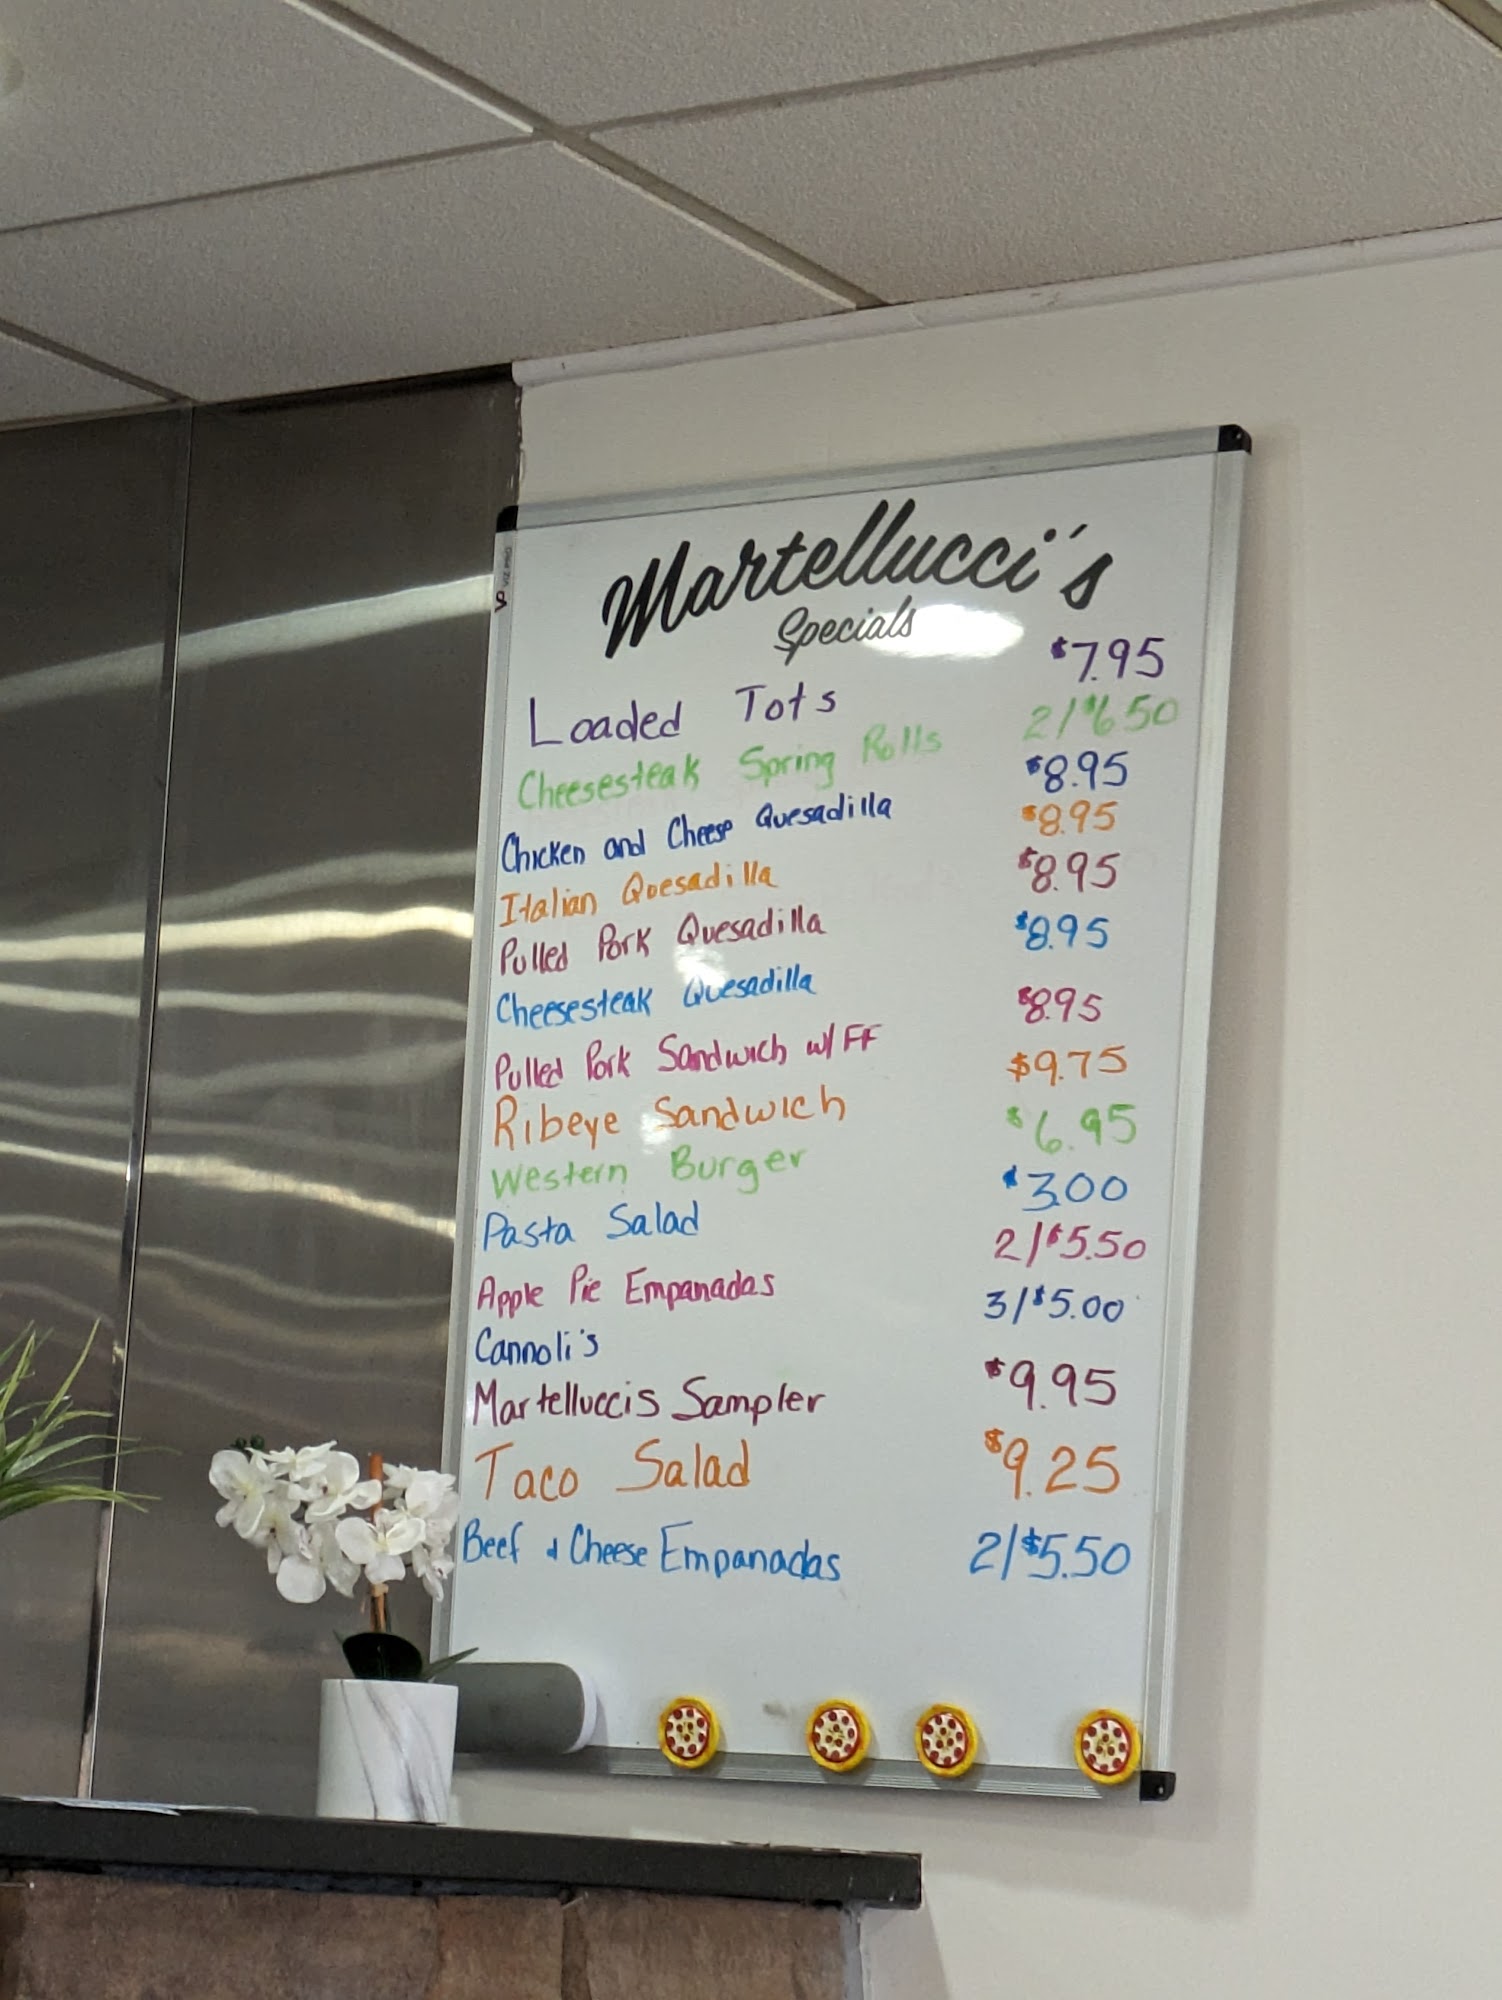 Martellucci's
Specials
Loaded Tots $7.95
Cheesesteak Spring Rolls 2/$6.50
Chicken and Cheese Quesadilla $8.95
Italian Quesadilla $8.95
Pulled Pork Quesadilla $8.95
Cheesesteak Quesadilla $8.95
Pulled Pork Sandwich w/ FF $8.95
Ribeye Sandwich $9.75
Western Burger $6.95
Pasta Salad $3.00
Apple Pie Empanadas 2/$5.50
Cannoli's 3/$5.00
Martelluccis Sampler $9.95
Taco Salad $9.25
Beef & Cheese Empanadas 2/$5.50